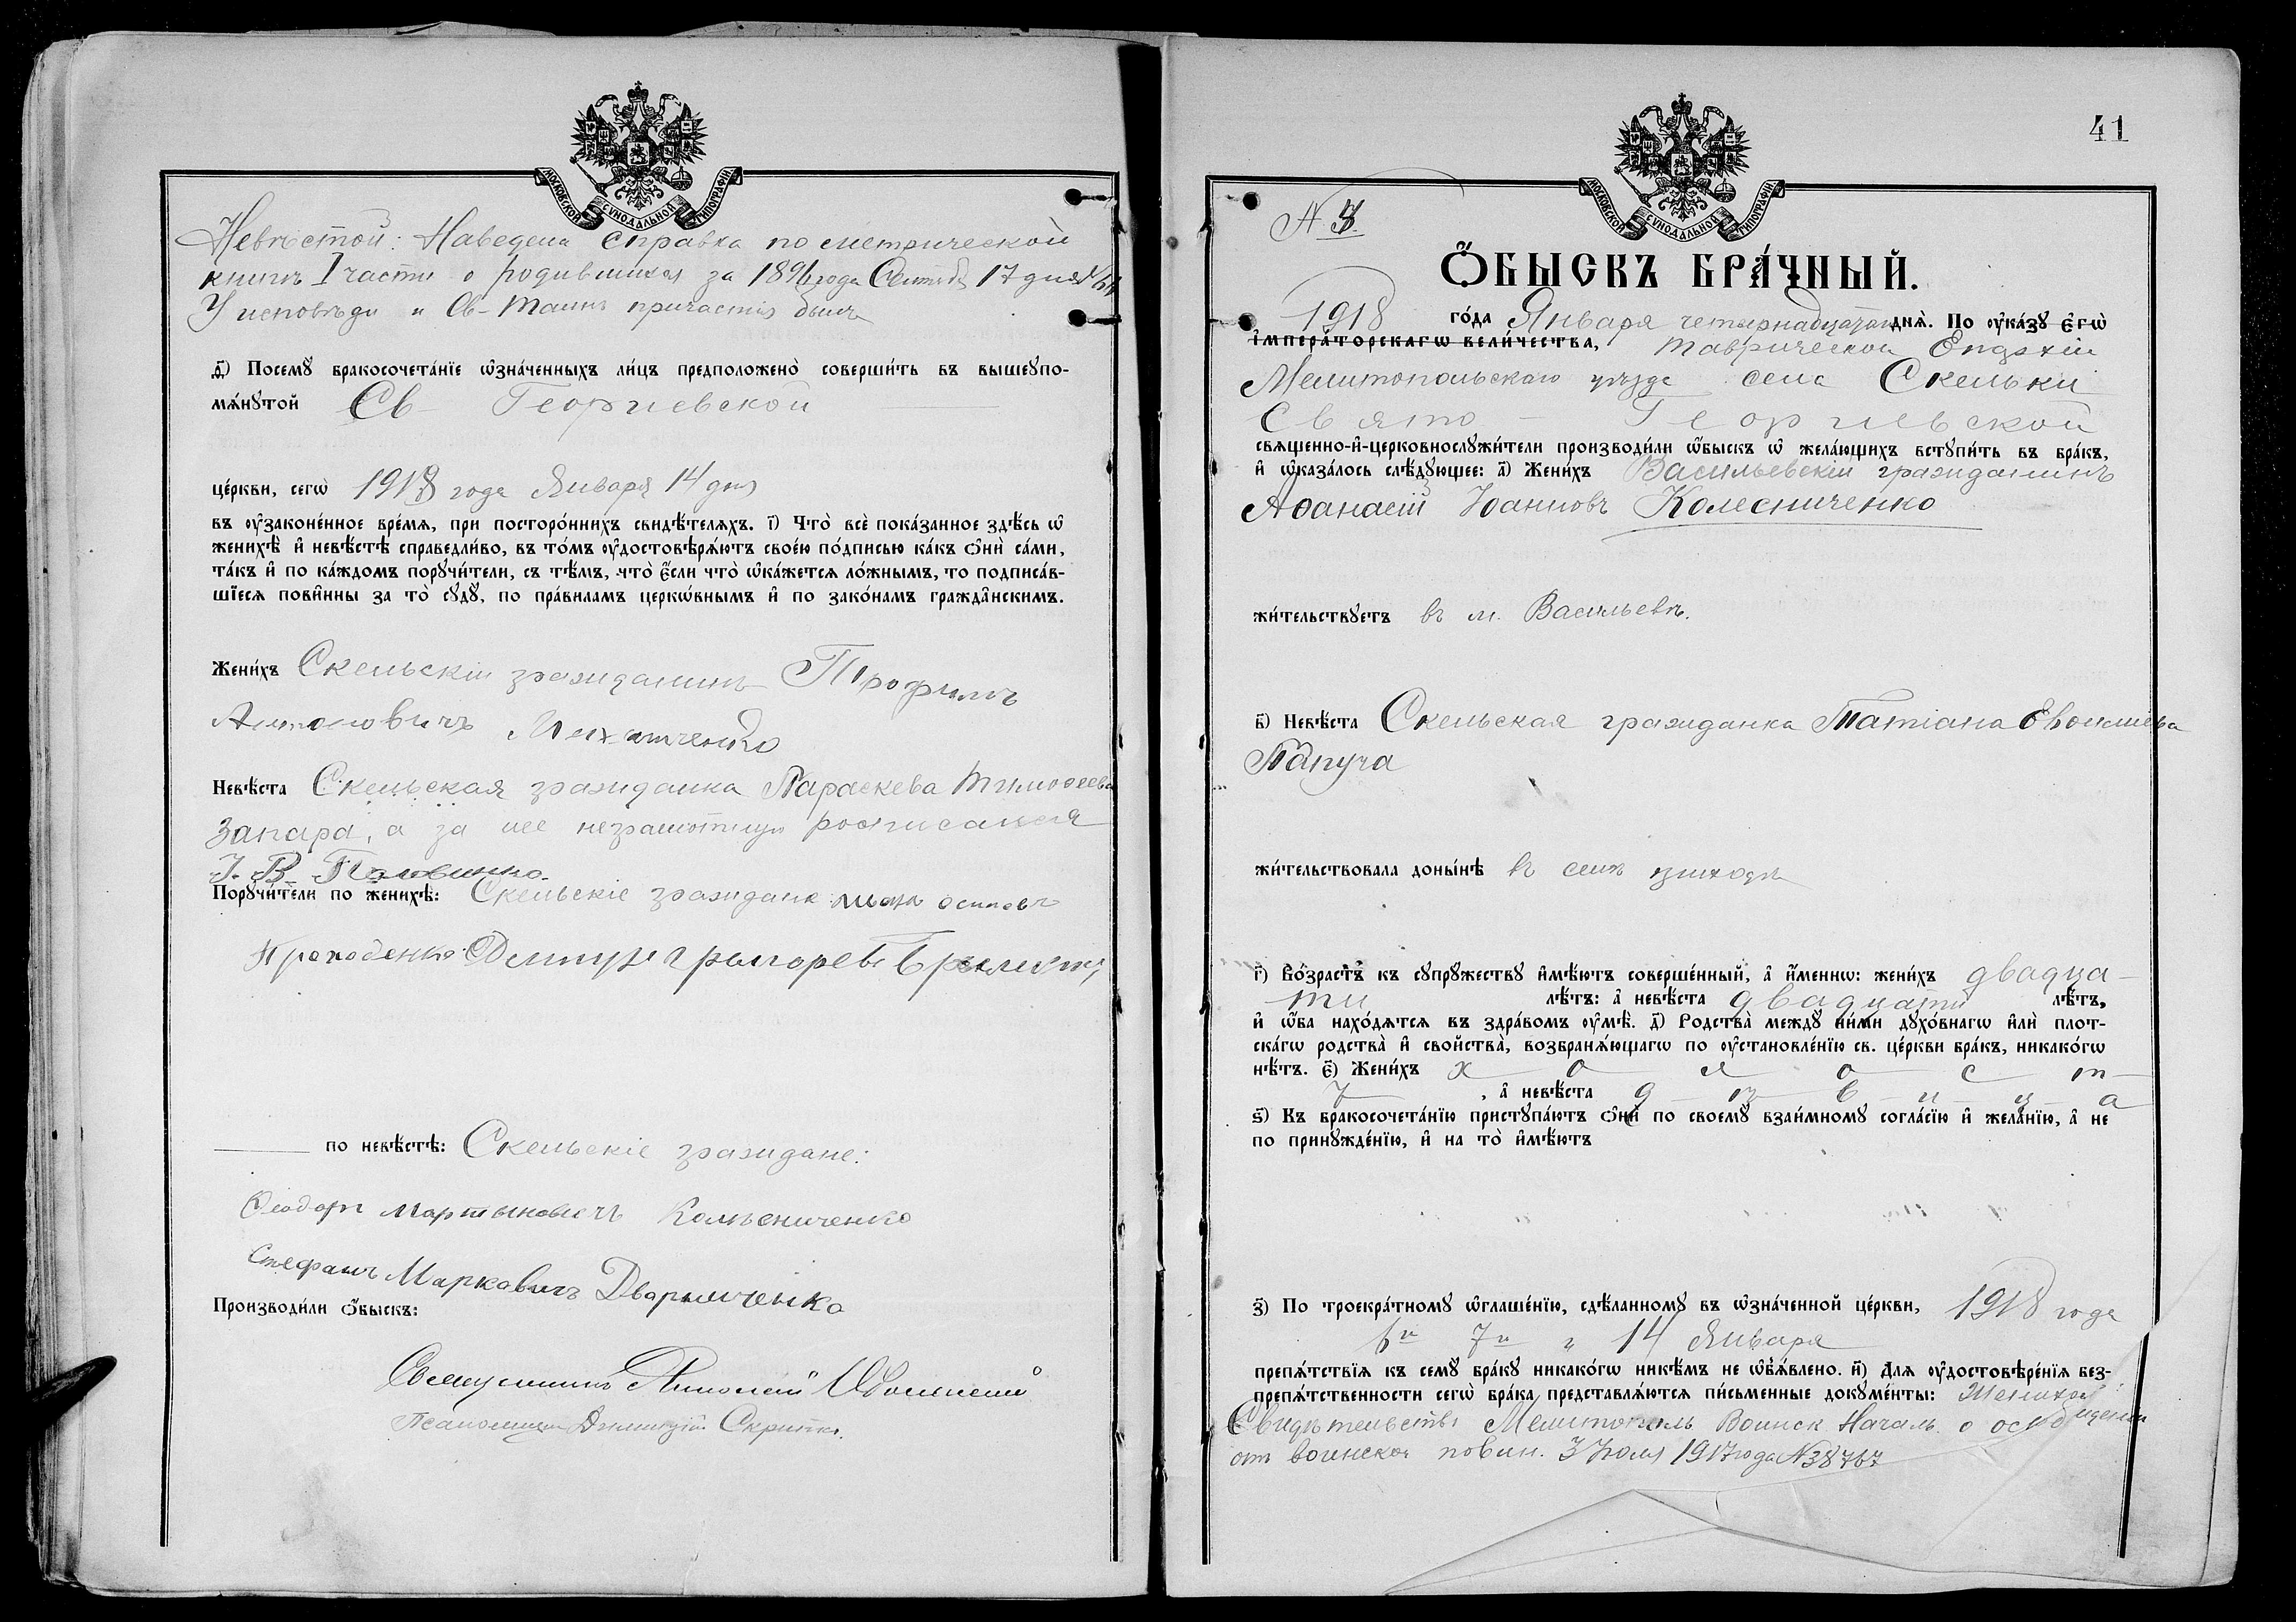 МОСКОВСКОЙ СѴНОДАЛЬНОЙ ТИПОГРАФІИ
Невѣстой: Наведена справка по метрической
книгѣ I части о родившихся за 1896 года Сентяб 17 дня
У исповѣди и Св. Таинъ причастія были
д҃) Посемꙋ бракосочета́нїе ѡ҆зна́ченныхъ ли́цъ предположено̀ соверши́ть въ вышеꙋпо-
мѧ́нꙋтой Св. Георгіевской
це́ркви, сегѡ̀ 1918 года Января 14 дня
въ ᲂу҆законе́нное вре́мѧ, при посторо́ннихъ свидѣ́телѧхъ. і҃) Что̀ всѐ пока́занное здѣ́сь ѡ҆
женихѣ̀ и҆ невѣ́стѣ справедли́во, въ то́мъ ᲂу҆достовѣрѧ́ютъ свое́ю по́дписью ка́къ ѻ҆нѝ са́ми,
та́къ и҆ по ка́ждомъ порꙋчи́тели, съ тѣ́мъ, что̀ є҆́сли что̀ ѡ҆ка́жетсѧ ло́жнымъ, то подписа́в-
шїесѧ пови́нны за то̀ сꙋдꙋ̀, по пра́виламъ церко́внымъ и҆ по зако́намъ гражда̂нскимъ.
Жени́хъ Скельскій гражданинъ Трофимъ
Антоновичъ
Невѣ́ста Скельская гражданка Параскева Тимоѳеева
Запара, а за нее неграмотную росписался
І. В. Половинко.
Порꙋчи́тели по женихѣ̀: Скельскіе граждане осиповъ
по невѣ́стѣ: Скельскіе граждане:
Ѳеодоръ Мартыновичъ Колѣсниченко
Стефанъ Марковичъ
Производи́ли ѻ҆́быскъ:
Священникъ Николай
Псаломщикъ Димитрій Скрипка.
41
МОСКОВСКОЙ СѴНОДАЛЬНОЙ ТИПОГРАФІИ
N 8.
Ѻ҆́БЫСКЪ БРА́ЧНЫЙ.
1918 го́да Января четырнадцатаго днѧ̀. По ᲂу҆ка́зꙋ є҆гѡ̀
і҆мпера́торскагѡ вели́чества, Таврической Епархіи
Мелитопольскаго уѣзда села Скельки
Свято - Георгіевской
свѧщенно-и҆-церковнослꙋжи́тели производи́ли ѡ҆́быскъ ѡ҆ жела́ющихъ встꙋпи́ть въ бра́къ,
и҆ ѡ҆каза́лось слѣ́дꙋющее: а҃) Жени́хъ Васильевскій гражданинъ
Аѳанасій Іоанновъ Колесниченко
жи́тельствꙋетъ въ м. Васильевкѣ.
в҃) Невѣ́ста Скельская гражданка Татіана
Папуча
жи́тельствовала доны́нѣ въ семъ приходѣ
г҃) Во́зрастъ къ сꙋпрꙋ́жествꙋ и҆мѣ́ютъ соверше́нный, а҆ и҆́меннѡ: жени́хъ двадца-
ти лѣ́тъ: а҆ невѣ́ста двадцати лѣ́тъ,
и҆ ѡ҆́ба нахо́дѧтсѧ въ здра́вомъ ᲂу҆мѣ̀. д҃) Родства̀ междꙋ̀ ни́ми дꙋхо́внагѡ и҆лѝ плот-
ска́гѡ родства̀ и҆ свойства̀, возбранѧ́ющагѡ по ᲂу҆становле́нїю св. це́ркви бра́къ, никако́гѡ
нѣ́тъ. є҃) Жени́хъ х о л о с т
ъ, а҆ невѣ́ста д ѣ в и ц а
ѕ҃) Къ бракосочета́нїю пристꙋпа́ютъ ѻ҆нѝ по своемꙋ̀ взаи́мномꙋ согла́сїю и҆ жела́нїю, а҆ не
по принꙋжде́нїю, и҆ на то̀ и҆мѣ́ютъ
з҃) По троекра́тномꙋ ѡ҆глаше́нїю, сдѣ́ланномꙋ въ ѡ҆зна́ченной це́ркви, 1918 года
6го 7го и 14 Января
препѧ́тствїѧ къ семꙋ̀ бра́кꙋ никако́гѡ никѣ́мъ не ѡ҆б̾ѧ́влено. и҃) Длѧ ᲂу҆достовѣре́нїѧ без-
препѧ́тственности сегѡ̀ бра́ка представлѧ́ютсѧ пи́сьменные докꙋме́нты: Женихомъ
Свидѣтельство Мелитополь Воинск Началь. о освобожденіи
от воинской повин. 3 Іюля 1917 года N38767